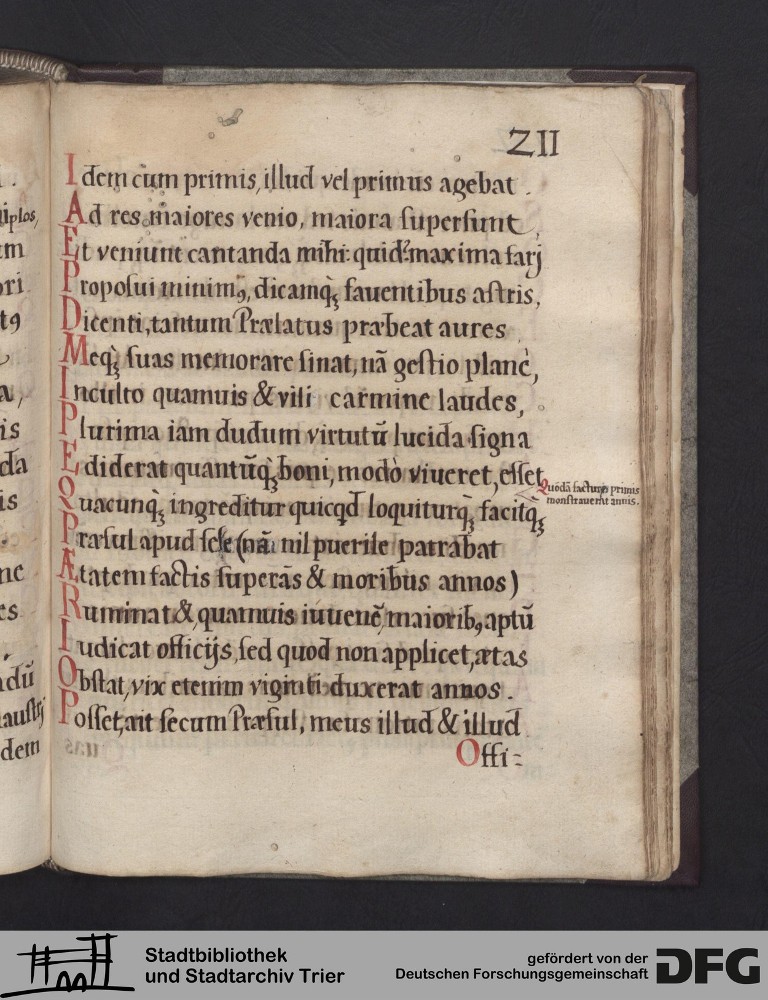 ZII
Idem cum primis, illud vel primus agebat.
Ad res maiores venio, maiora supersunt,
Et veniunt cantanda mihi: quid? maxima farj
Proposui minimꝰ, dicamq̃ꝫ fauentibus astris,
Dicenti, tantum Prælatus præbeat aures
Meq̃ꝫ suas memorare sinat, nã gestio planè,
Inculto quamuis & vili carmine laudes,
Plurima iam dudum virtutũ lucida signa
Ediderat quantũq̃ꝫ boni, modò viueret, esset
Quacunq̃ꝫ ingreditur quicqđ loquiturq̃ꝫ facitq̃ꝫ
Quodã facturꝰ primis
monstrauerat annis.
Præsul apud sese (nã nil puerile patrabat
Ætatem factis superãs & moribus annos)
Ruminat &, quamuis iuuenẽ, maioribꝰ aptũ
Iudicat officijs, sed quod non applicet, ætas
Obstat, vix etenim viginti duxerat annos.
Posset, ait secum Præsul, meus illud & illud
Offi=
iplos,
tꝰ
a,
is
da
is
es
adũ
dem
Stadtbibliothek
und Stadtarchiv Trier
gefördert von der
Deutschen Forschungsgemeinschaft
DFG